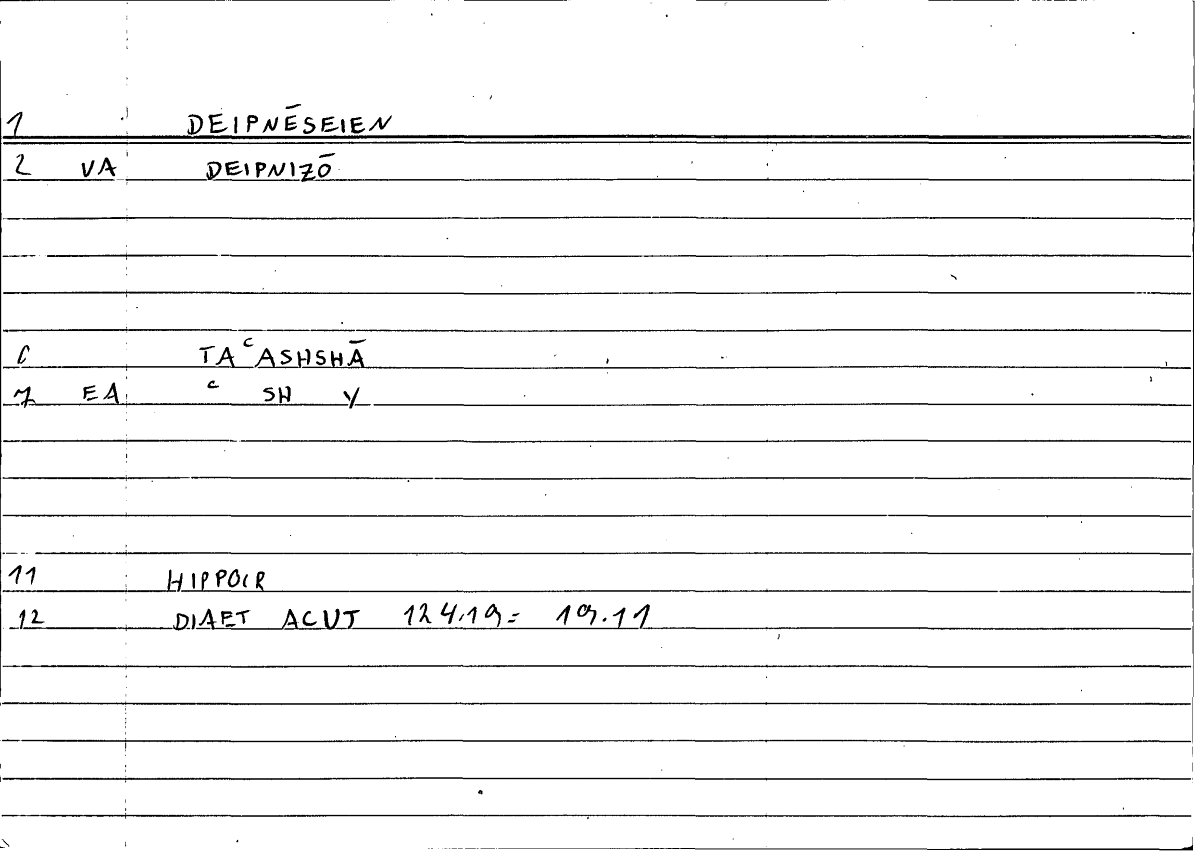 1 DEIPNĒSEIEN
2 VA DEIPNIZŌ
6 TAᶜASHSHĀ
7 EA ᶜ SH Y
11 HIPPOCR
12 DIAET ACUT 124.19= 19.11